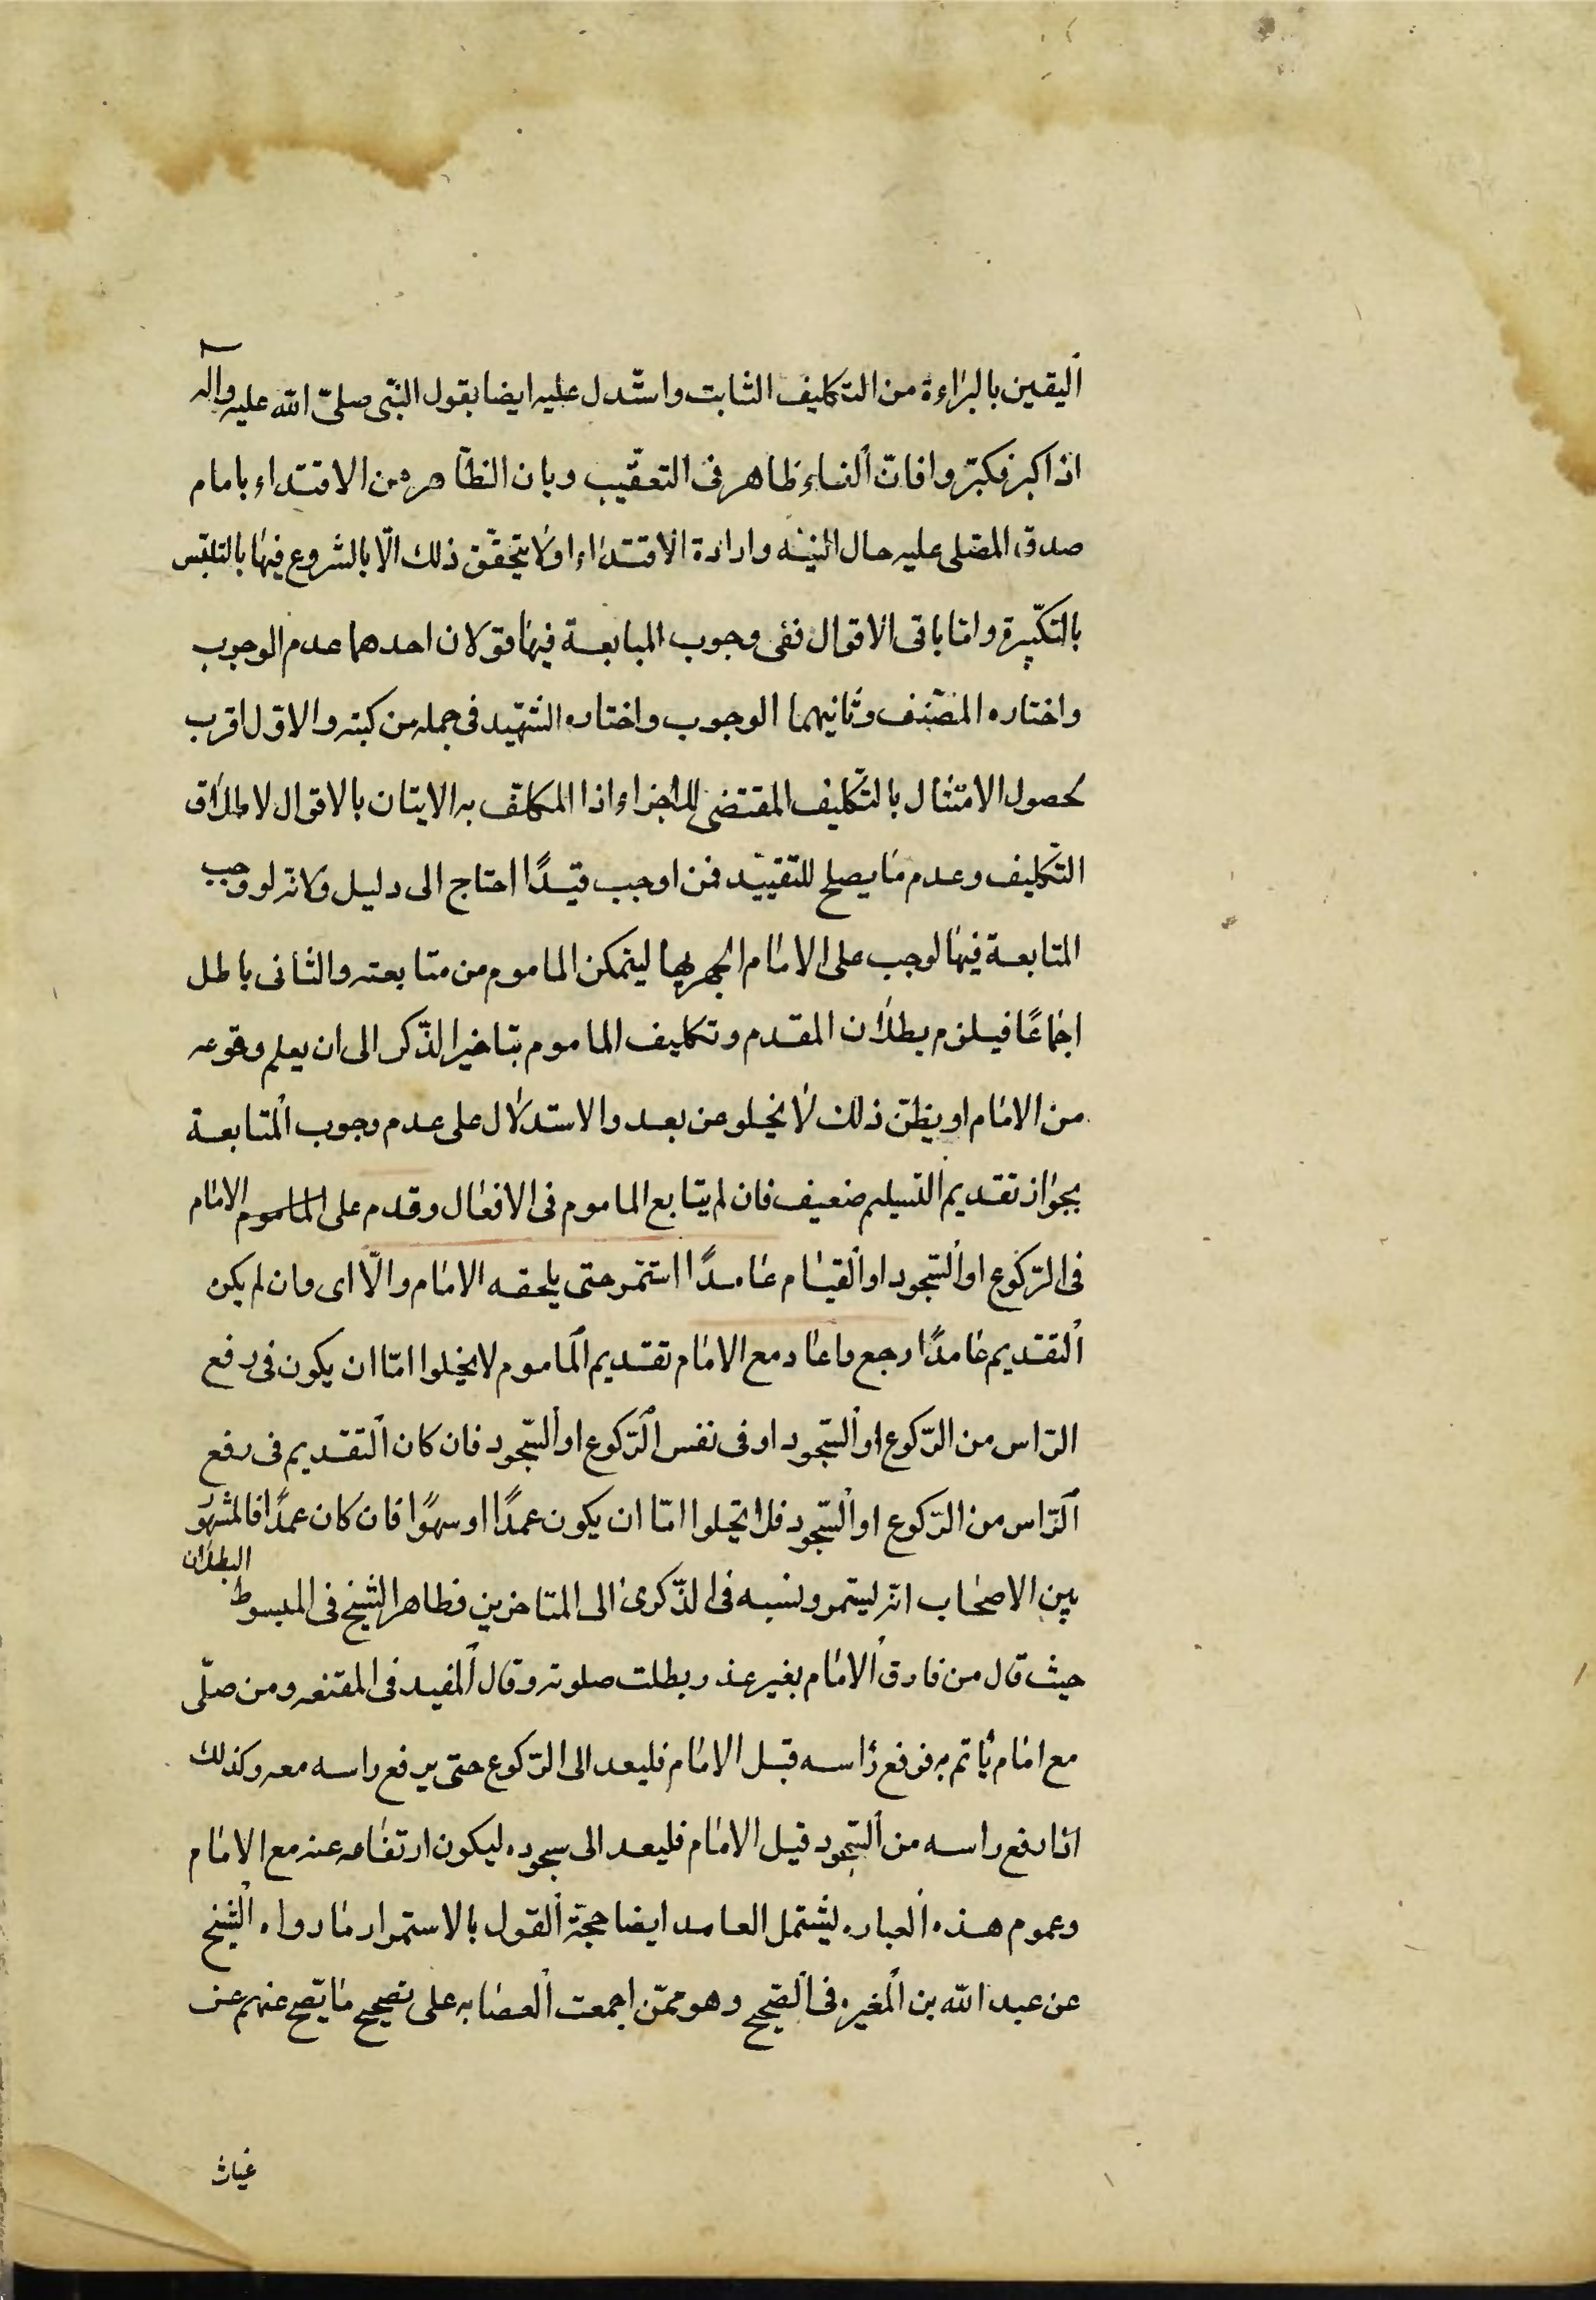 اليقين بالبراءة من التكليف الثابت واستدل عليه ايضا بقول النبى صلى الله عليه واله
اذا كبر فكبروا فان الفاء ظاهر فى التعقيب وبان الظاهر من الاقتداء بامام
صدق المصلى عليه حال النيه وارادة الاقتداء ولا يتحقق ذلك الا بالشروع فيها بالتلبس
بالتكبيرة واما باقى الاقوال ففى وجوب المبابعة فيها قولان احدهما عدم الوجوب
واختاره المصنف وثانيهما الوجوب واختاره الشهيد فى جمله من كتبه والاول اقرب
لحصول الامتثال بالتكليف المقتضى للاجزاء اذا المكلف به الايتان بالاقوال لاطلاق
التكليف وعدم ما يصلح للتقييد فمن اوجب قيدًا احتاج الى دليل ولانه لو وجب
المتابعة فيها لوجب على الامام الجهر بها ليتمكن الماموم من متابعته والثانى باطل
اجماعًا فيلزم بطلان المقدم وتكليف الماموم بتاخير الذكر الى ان يعلم وقوعه
من الامام او يظن ذلك لا يخلو عن بعد والاستدلال على عدم وجوب المتابعة
بجواز تقديم التسليم ضعيف فان لم يتابع الماموم فى الافعال وقدم على الماموم الامام
فى الركوع او السجود او القيام عامدًا استمر حتى يلحقه الامام والا اى وان لم يكن
التقديم عامدًا رجع واعاد مع الامام تقديم الماموم لا يخلوا اما ان يكون فى رفع
الراس من الركوع او السجود او فى نفس الركوع او السجود فان كان التقديم فى رفع
الراس من الركوع او السجود فلا يخلوا اما ان يكون عمدًا او سهوًا فان كان عمدًا فالمشهور
بين الاصحاب انه ليتمر ونسبه فى الذكرى الى المتاخرين فظاهر الشيخ فى المبسوط البطلان
حيث قال من فارق الامام بغير عذر بطلت صلوته وقال المفيد فى المقنعه ومن صلى
مع امام ياتم به فرفع راسه قبل الامام فليعد الى الركوع حتى يرفع راسه معه وكذلك
اذا رفع راسه من السجود قبل الامام فليعد الى سجوده ليكون ارتفاعه عنه مع الامام
وعموم هذه العباره ليشتمل العامد ايضا حجة القول بالاستمرار ما رواه الشيخ
عن عبد الله بن المغيره فى الصحيح وهو ممن اجمعت العصابه على تصحيح ما يصح عنهم عن
غياث